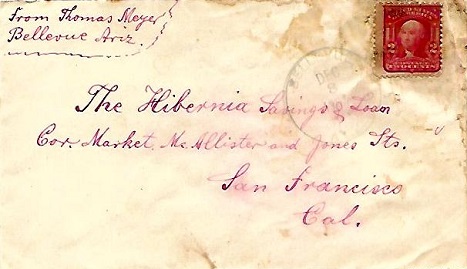 From Thomas Meyer
Bellevue Ariz.
The Hibernia Savings & Loan
Cor. Market, McAllister and Jones Sts.
San Francisco
Cal.
2 2